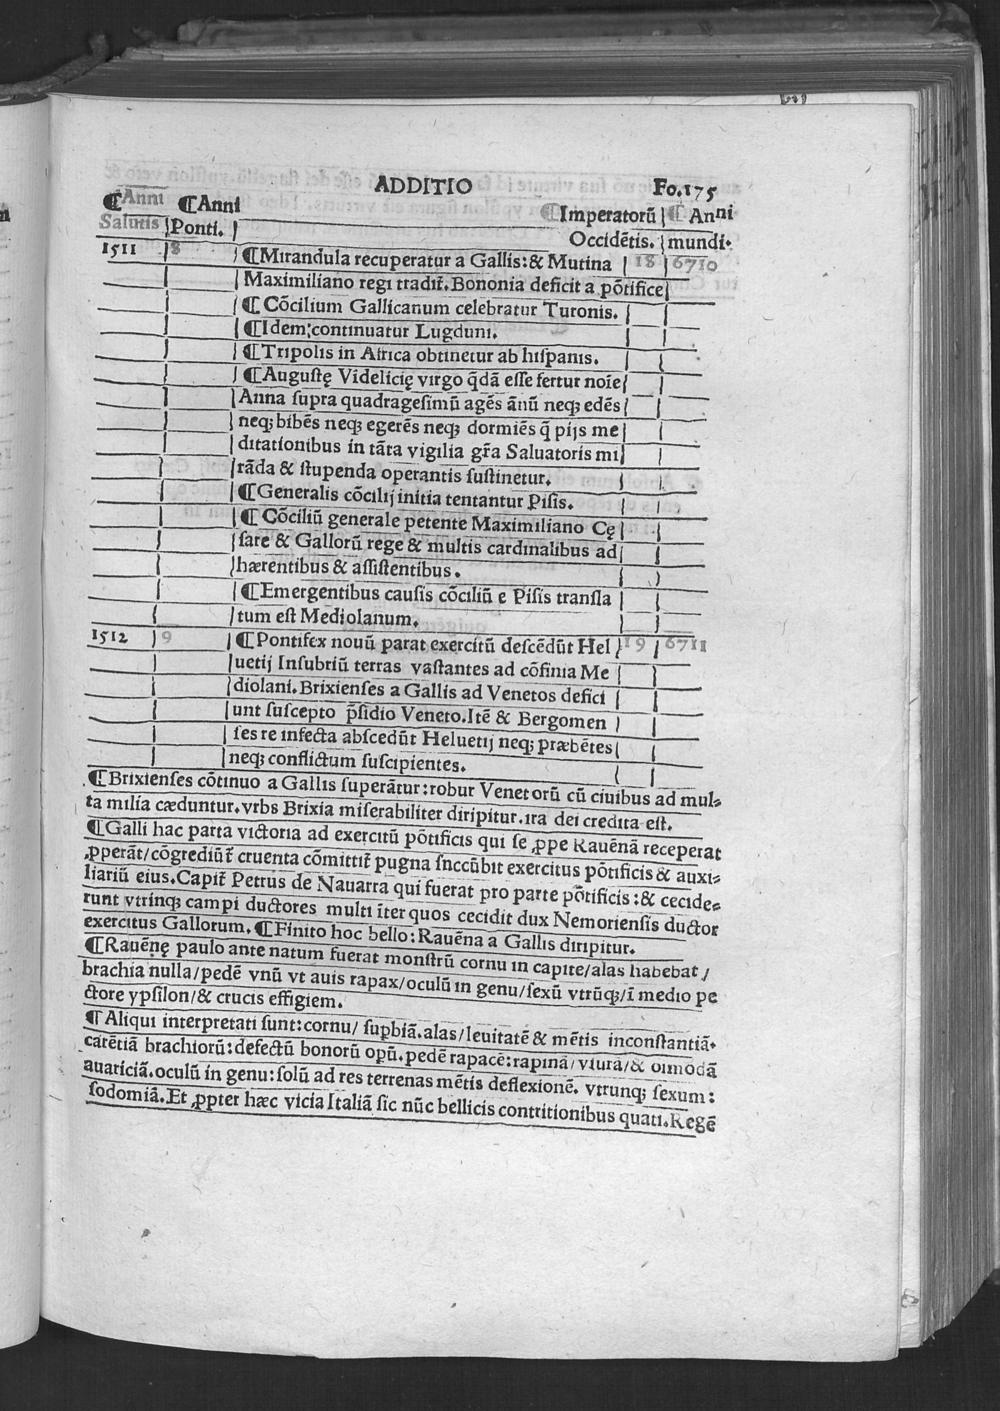 ADDITIO Fo.175
¶Anni ¶Anni ¶Imperatorū ¶Anni
Salutis Ponti. Occidētis. mundi.
1511 8 ¶Mirandula recuperatur a Gallis:& Mutina 18 6710
Maximiliano regi tradit̄. Bononia deficit a pōtifice
¶Cōcilium Gallicanum celebratur Turonis.
¶Idem continuatur Lugduni.
¶Tripolis in Africa obtinetur ab hiſpanis.
¶Auguſtę Videlicię virgo q̄dā eſſe fertur noīe
Anna ſupra quadrageſimū agēs ānū neqꝫ edēs
neqꝫ bibēs neqꝫ egerēs neqꝫ dormiēs q̄ pijs me
ditationibus in tāta vigilia gr̄a Saluatoris mi
rāda & ſtupenda operantis ſuſtinetur.
¶Generalis cōcilij initia tentantur Piſis.
¶Cōciliū generale petente Maximiliano Cę
ſare & Gallorū rege & multis cardinalibus ad
hærentibus & aſſiſtentibus.
¶Emergentibus cauſis cōciliū e Piſis tranſla
tum eſt Mediolanum.
1512 9 ¶Pontifex nouū parat exercitū deſcēdūt Hel 19 6711
uetij Inſubriū terras vaſtantes ad cōfinia Me
diolani.Brixienſes a Gallis ad Venetos defici
unt ſuſcepto p̄ſidio Veneto.Itē & Bergomen
ſes re infecta abſcedūt Heluetij neqꝫ præbētes
neqꝫ conflictum ſuſcipientes.
¶Brixienſes cōtinuo a Gallis ſuperātur:robur Venetorū cū ciuibus ad mul⸗
ta milia cæduntur.vrbs Brixia miſerabiliter diripitur.ira dei credita eſt.
¶Galli hac parta victoria ad exercitū pōtificis qui ſe ꝓpe Rauēnā receperat
ꝓperāt/cōgrediūt̄ cruenta cōmittit̄ pugna ſnccūbit exercitus pōtificis & auxi⸗
liariū eius.Capit̄ Petrus de Nauarra qui fuerat pro parte pōtificis:& cecide⸗
runt vtrinqꝫ campi ductores multi īter quos cecidit dux Nemorienſis ductor
exercitus Gallorum.¶Finito hoc bello:Rauēna a Gallis diripitur.
¶Rauēnę paulo ante natum fuerat monſtrū cornu in capite/alas habebat/
brachia nulla/pedē vnū vt auis rapax/oculū in genu/ſexū vtrūqꝫ/ī medio pe
ctore ypſilon/& crucis effigiem.
¶Aliqui interpretati ſunt:cornu/ ſuꝑbiā.alas/leuitatē & mētis inconſtantiā.
carētiā brachiorū:defectū bonorū opū.pedē rapacē:rapinā/vſurā/& oīmodā
auariciā.oculū in genu:ſolū ad res terrenas mētis deflexionē. vtrunqꝫ ſexum:
ſodomiā.Et ꝓpter hæc vicia Italiā ſic nūc bellicis contritionibus quati.Regē